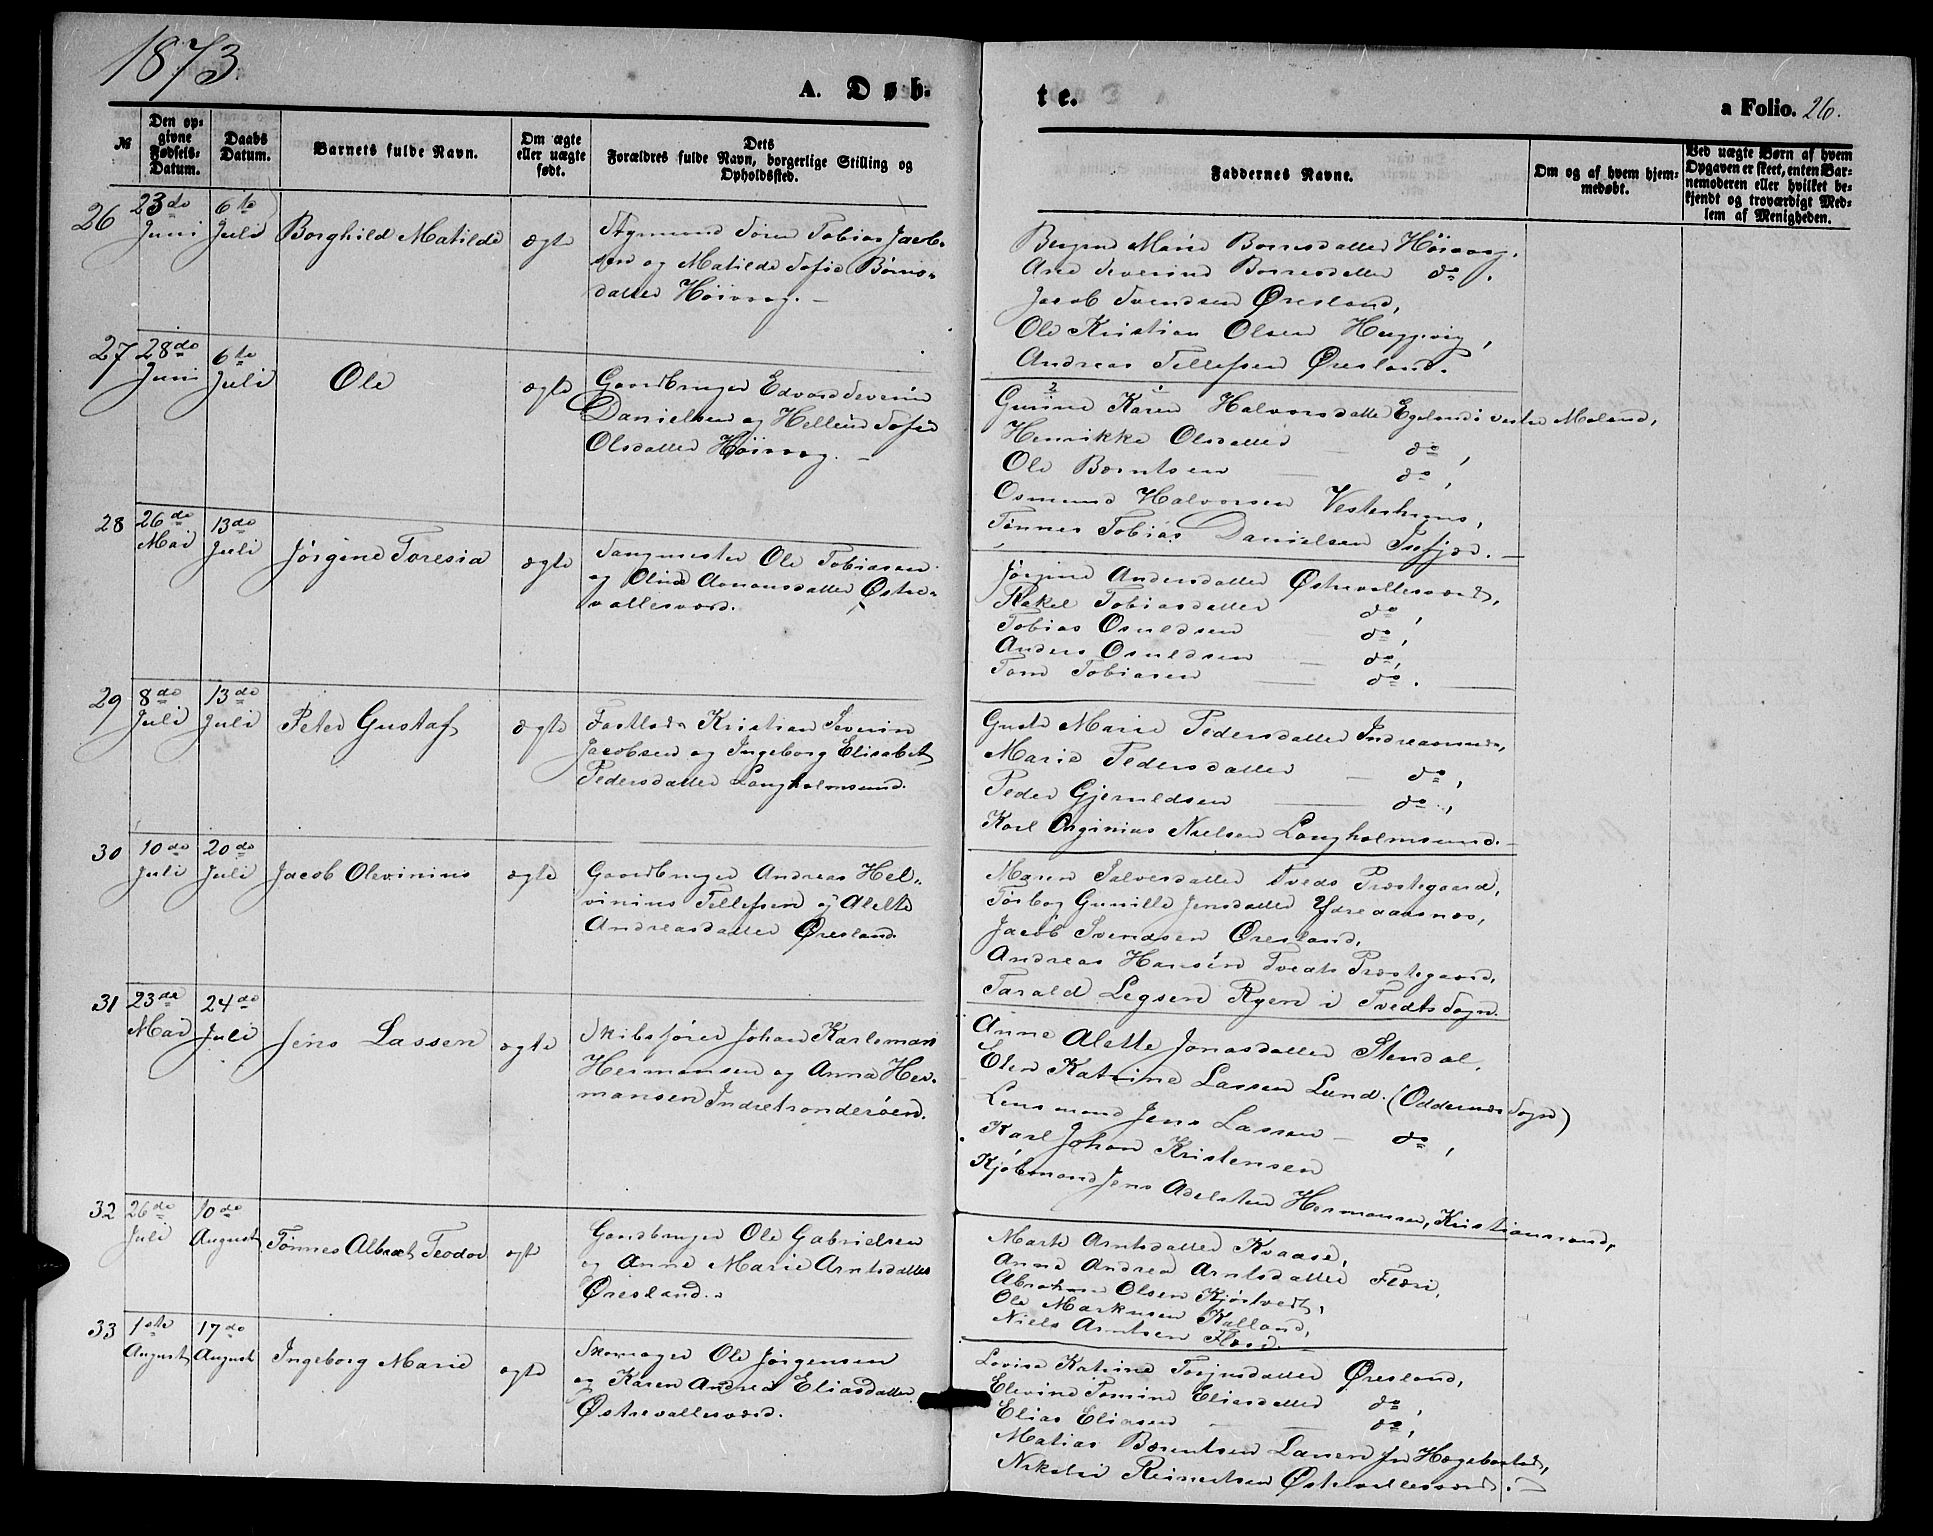 1873
A. Døb-
te.
a Folio. 26.
№
Den op-
givne
Fødsels-
Datum.
Daabs
Datum.
Barnets fulde Navn.
Om ægte
eller uægte
født.
Dets
Forældres fulde Navn, borgerlige Stilling og
Opholdssted.
Faddernes Navne.
Om og af hvem hjem-
medøbt.
Ved uægte Børn af hvem
Opgaven er skeet, enten Bar-
nemoderen eller hvilket be-
kjendt og troværdigt Med-
lem af Menigheden.
26
23do
Juni
6te
Juli
Borghild Matilde
ægte
Sören Tobias Jacob-
sen og Matilde Sofie
datter Höivaag.
Marie Höivaag,
Severine do,
Jacob Svendsen Øresland,
Ole Kristian Olsen
Andreas Tellefsen Øresland.
27
28do
Juni
6te
Juli
Ole
ægte
Gaardbruger Edvard Severin
Danielsen og Helline Sofie
Olsdatter Höivaag.
2 1
Gurine Karen Halvorsdatter Egeland i vestre Moland,
Henrikke Olsdatter do,
Ole Berntsen do,
Osmund Halvorsen
Tönnes Tobias Danielsen
28
26de
Mai
13de
Juli
Jörgine Toresia
ægte
Ole Tobiasen
og Oline Østre-
vallesværd.
Jörgine Andersdatter Østrevallesværd,
Rakel Tobiasdatter do,
Tobias Osuldsen do,
Anders Osuldsen do,
Tom Tobiasen do.
29
8de
Juli
13de
Juli
Peter Gustaf
ægte
Kristian Severin
Jacobsen og Ingeborg Elisabet
Pedersdatter Langholmsund.
Marie Pedersdatter
Marie Pedersdatter do,
Peder Gjeruldsen do,
Karl Nielsen Langholmsund.
30
10de
Juli
20de
Juli
Jacob Olevinius
ægte
Gaardbruger Andreas Hel-
vinius Tellefsen og Alette
Andreasdatter Øresland.
Maren Salvesdatter Tveds Præstegaard,
Torbor Gunille Jensdatter Ydreaasnes,
Jacob Svendsen Øresland,
Andreas Hansen Tveds Præstegaard,
Tarald Legsen Ryen i Tvedts Sogn.
31
23de
Mai
24de
Juli
Jens Lassen
ægte
Skibsförer Johan Karlsman
Hermansen og Anna Her-
mansen Indretronderöen.
Anne Alette Jonasdatter Stendal,
Elen Katrine Lassen Lund. (Oddernes Sogn)
Lensmand Jens Lassen do,
Karl Johan Kristensen
Kjöbmand Jens Adelsten Hermansen, Kristianssand,
32
26de
Juli
10de
August
Tönnes Albret Teodor
ægte
Gaardbruger Ole Gabrielsen
og Anne Marie Arntsdatter
Øresland.
Marte Arntsdatter Kvaase,
Anna Andrea Arntsdatter Flöre,
Abraham Olsen Kjöstvedt,
Ole Markusen Kalland,
Niels Arntsen
33
1ste
August
17de
August
Ingeborg Marie
ægte
Skomager Ole Jörgensen
og Karen Andrea Eliasdatter
Østrevallesværd.
Lovise Katrine Øresland,
Elevine Tomine Eliasdatter do,
Elias Eliasen do,
Matias Berentsen
Reinertsen Østrevallesværd.